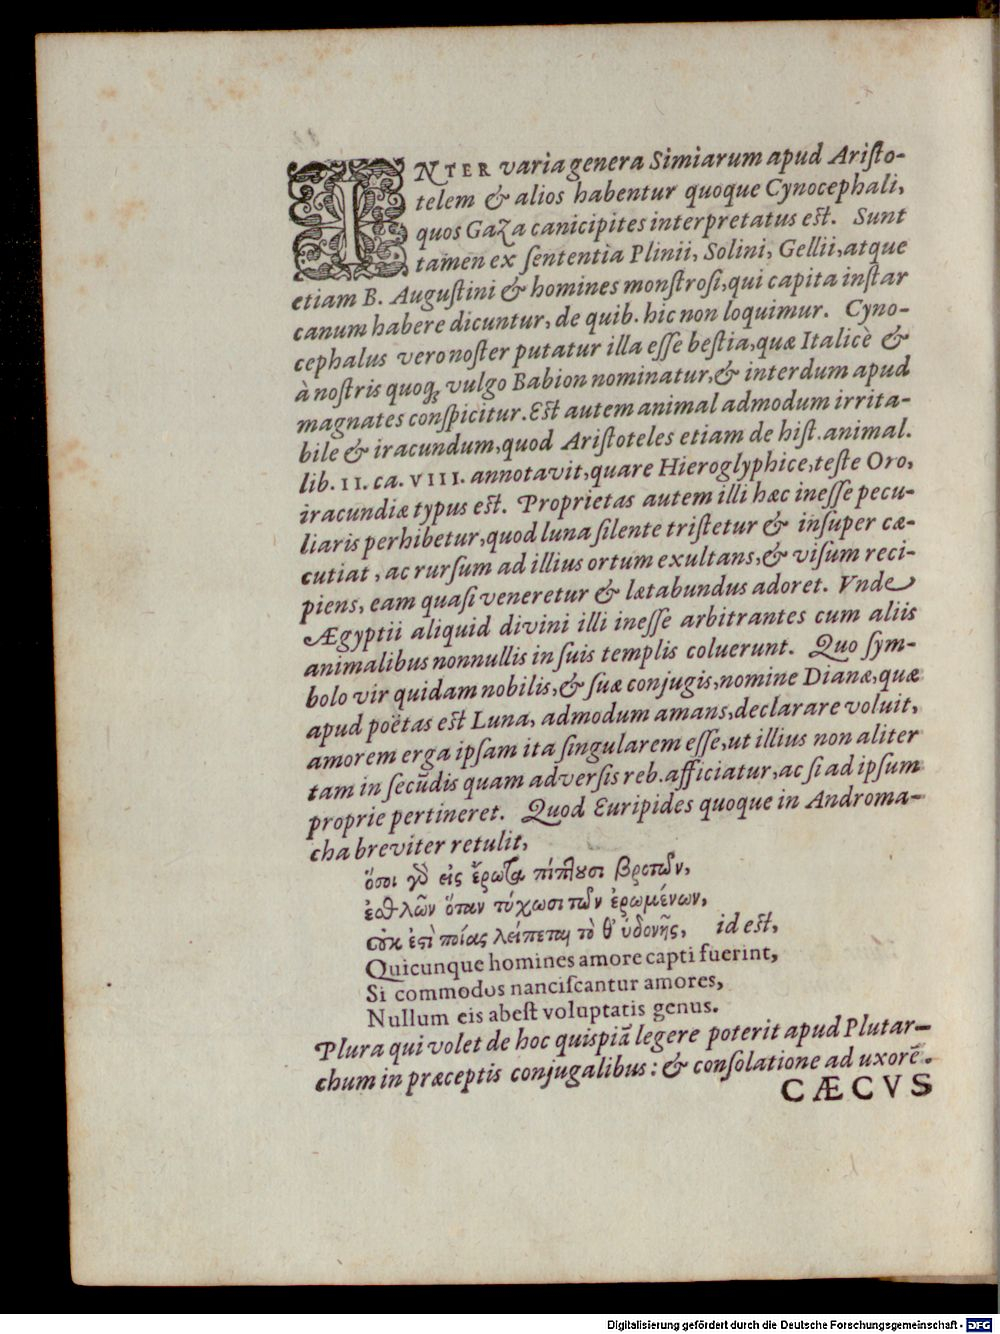 INTER varia genera Simiarum apud Aristo-
telem & alios habentur quoque Cynocephali,
quos Gaza canicipites interpretatus est. Sunt
tamen ex sententia Plinii, Solini, Gellii, atque
etiam B. Augustini & homines monstrosi, qui capita instar
canum habere dicuntur, de quib. hic non loquimur. Cyno-
cephalus vero noster putatur illa esse bestia, quæ Italicè &
à nostris quoq; vulgo Babion nominatur, & interdum apud
magnates conspicitur. Est autem animal admodum irrita-
bile & iracundum, quod Aristoteles etiam de hist. animal.
lib. II. ca. VIII. annotavit, quare Hieroglyphice, teste Oro,
iracundiæ typus est. Proprietas autem illi hæc inesse pecu-
liaris perhibetur, quod luna silente tristetur & insuper cæ-
cutiat, ac rursum ad illius ortum exultans, & visum reci-
piens, eam quasi veneretur & lætabundus adoret. Vnde
Ægyptii aliquid divini illi inesse arbitrantes cum aliis
animalibus nonnullis in suis templis coluerunt. Quo sym-
bolo vir quidam nobilis, & suæ conjugis, nomine Dianæ, quæ
apud poëtas est Luna, admodum amans, declarare voluit,
amorem erga ipsam ita singularem esse, ut illius non aliter
tam in secūdis quam adversis reb. afficiatur, ac si ad ipsum
proprie pertineret. Quod Euripides quoque in Androma-
cha breviter retulit,
ὅσοι γὸ εἰς ἔρωτα πίπτουσι βροτῶν,
ἐσθλῶν ὅταν τύχωσι τῶν ἐρωμένων,
οὐκ ἐστὶ ποίας λείπεται τὸ θ' ὑδονῆς, id est,
Quicunque homines amore capti fuerint,
Si commodos nanciscantur amores,
Nullum eis abest voluptatis genus.
Plura qui volet de hoc quispiā legere poterit apud Plutar-
chum in præceptis conjugalibus: & consolatione ad uxorē.
CÆCVS
Digitalisierung gefördert durch die Deutsche Forschungsgemeinschaft - DFG